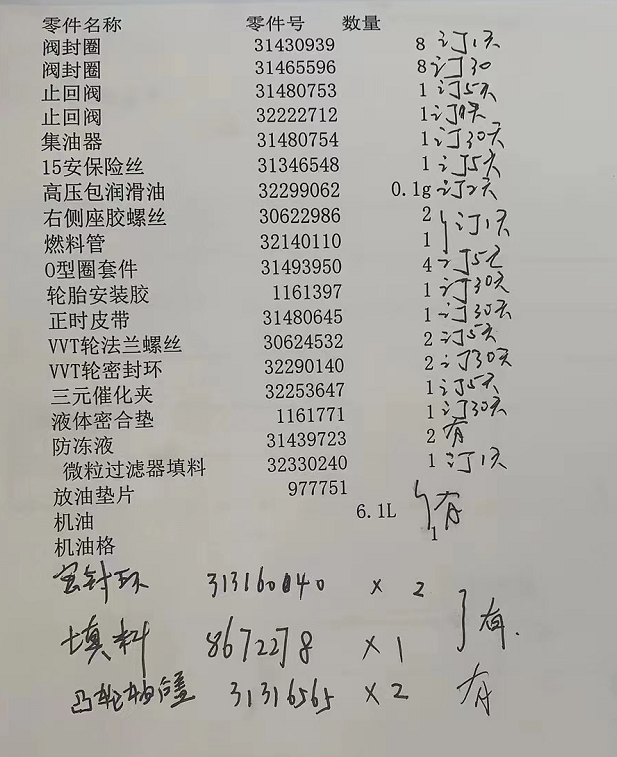 零件名称 零件号 数量
阀封圈 31430939 8 订1天
阀封圈 31465596 8 订30
止回阀 31480753 1 订5天
止回阀 32222712 1 订天
集油器 31480754 1 订30天
15安保险丝 31346548 1 订5天
高压包润滑油 32299062 0.1g 订2天
右侧座胶螺丝 30622986 2 订1天
燃料管 32140110 1
O型圈套件 31493950 4 订5天
轮胎安装胶 1161397 1 订30天
正时皮带 31480645 1 订30天
VVT轮法兰螺丝 30624532 2 订5天
VVT轮密封环 32290140 2 订30天
三元催化夹 32253647 1 订5天
液体密合垫 1161771 1 订30天
防冻液 31439723 2 有
微粒过滤器填料 32330240 1 订1天
放油垫片 977751
机油 6.1L 有
机油格 1
密封环 31316040 × 2
填料 8672278 × 1 有.
凸轮轴后盖 31316565 × 2 有